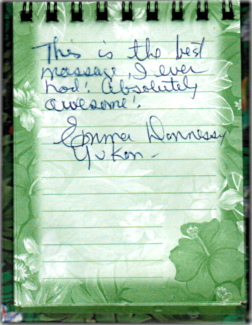 This is the best
massage, I ever
had! Absolutely
awesome!
Emma Donnessy
Yukon.